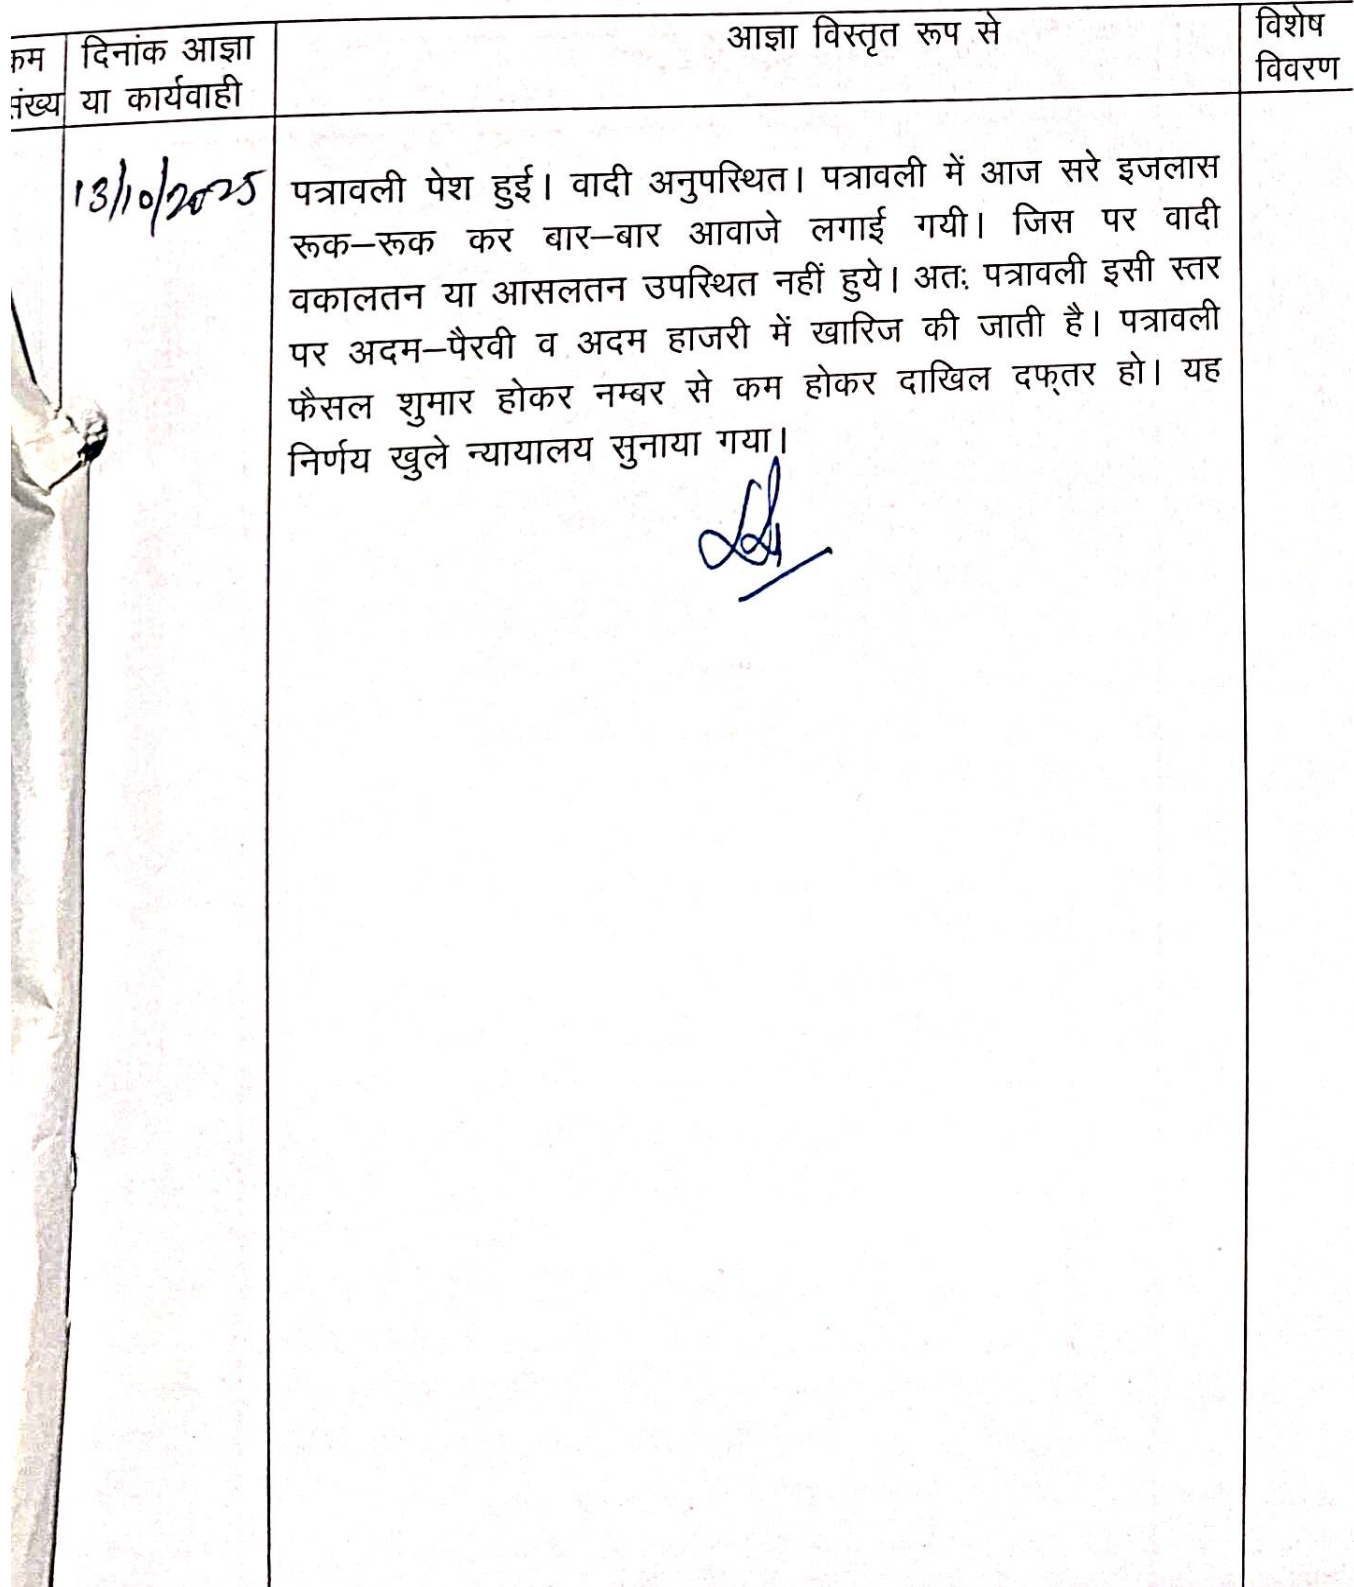 क्रम
संख्य
दिनांक आज्ञा
या कार्यवाही
आज्ञा विस्तृत रूप से
विशेष
विवरण
13/10/2025
पत्रावली पेश हुई। वादी अनुपस्थित। पत्रावली में आज सरे इजलास
रूक–रूक कर बार–बार आवाजे लगाई गयी। जिस पर वादी
वकालतन या आसलतन उपस्थित नहीं हुये। अतः पत्रावली इसी स्तर
पर अदम–पैरवी व अदम हाजरी में खारिज की जाती है। पत्रावली
फैसल शुमार होकर नम्बर से कम होकर दाखिल दफ्तर हो। यह
निर्णय खुले न्यायालय सुनाया गया।